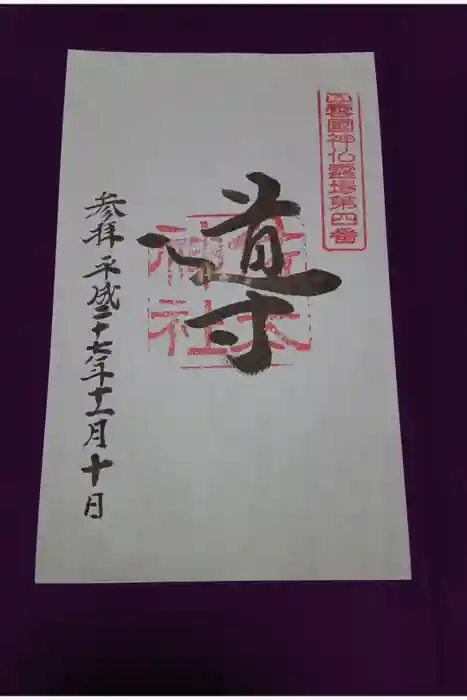 出雲國神仏靈場第四番
導
佐太
神社
参拝 平成二十七年十一月十日